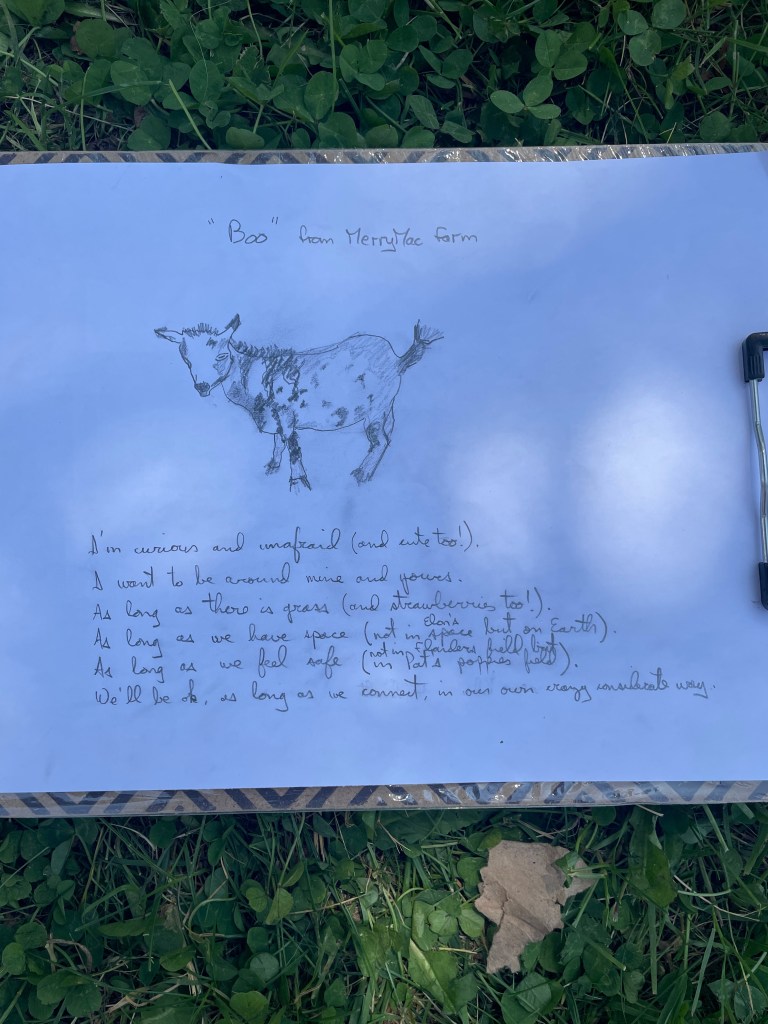 "Boo" from MerryMac Farm
I'm curious and unafraid (and cute too!).
I want to be around mine and yours.
As long as there is grass (and strawberries too!).
As long as we have space (not in Elon's space but on Earth).
As long as we feel safe (not in Flanders field but in Pat's poppies field).
We'll be ok, as long as we connect, in our own crazy considerate way.